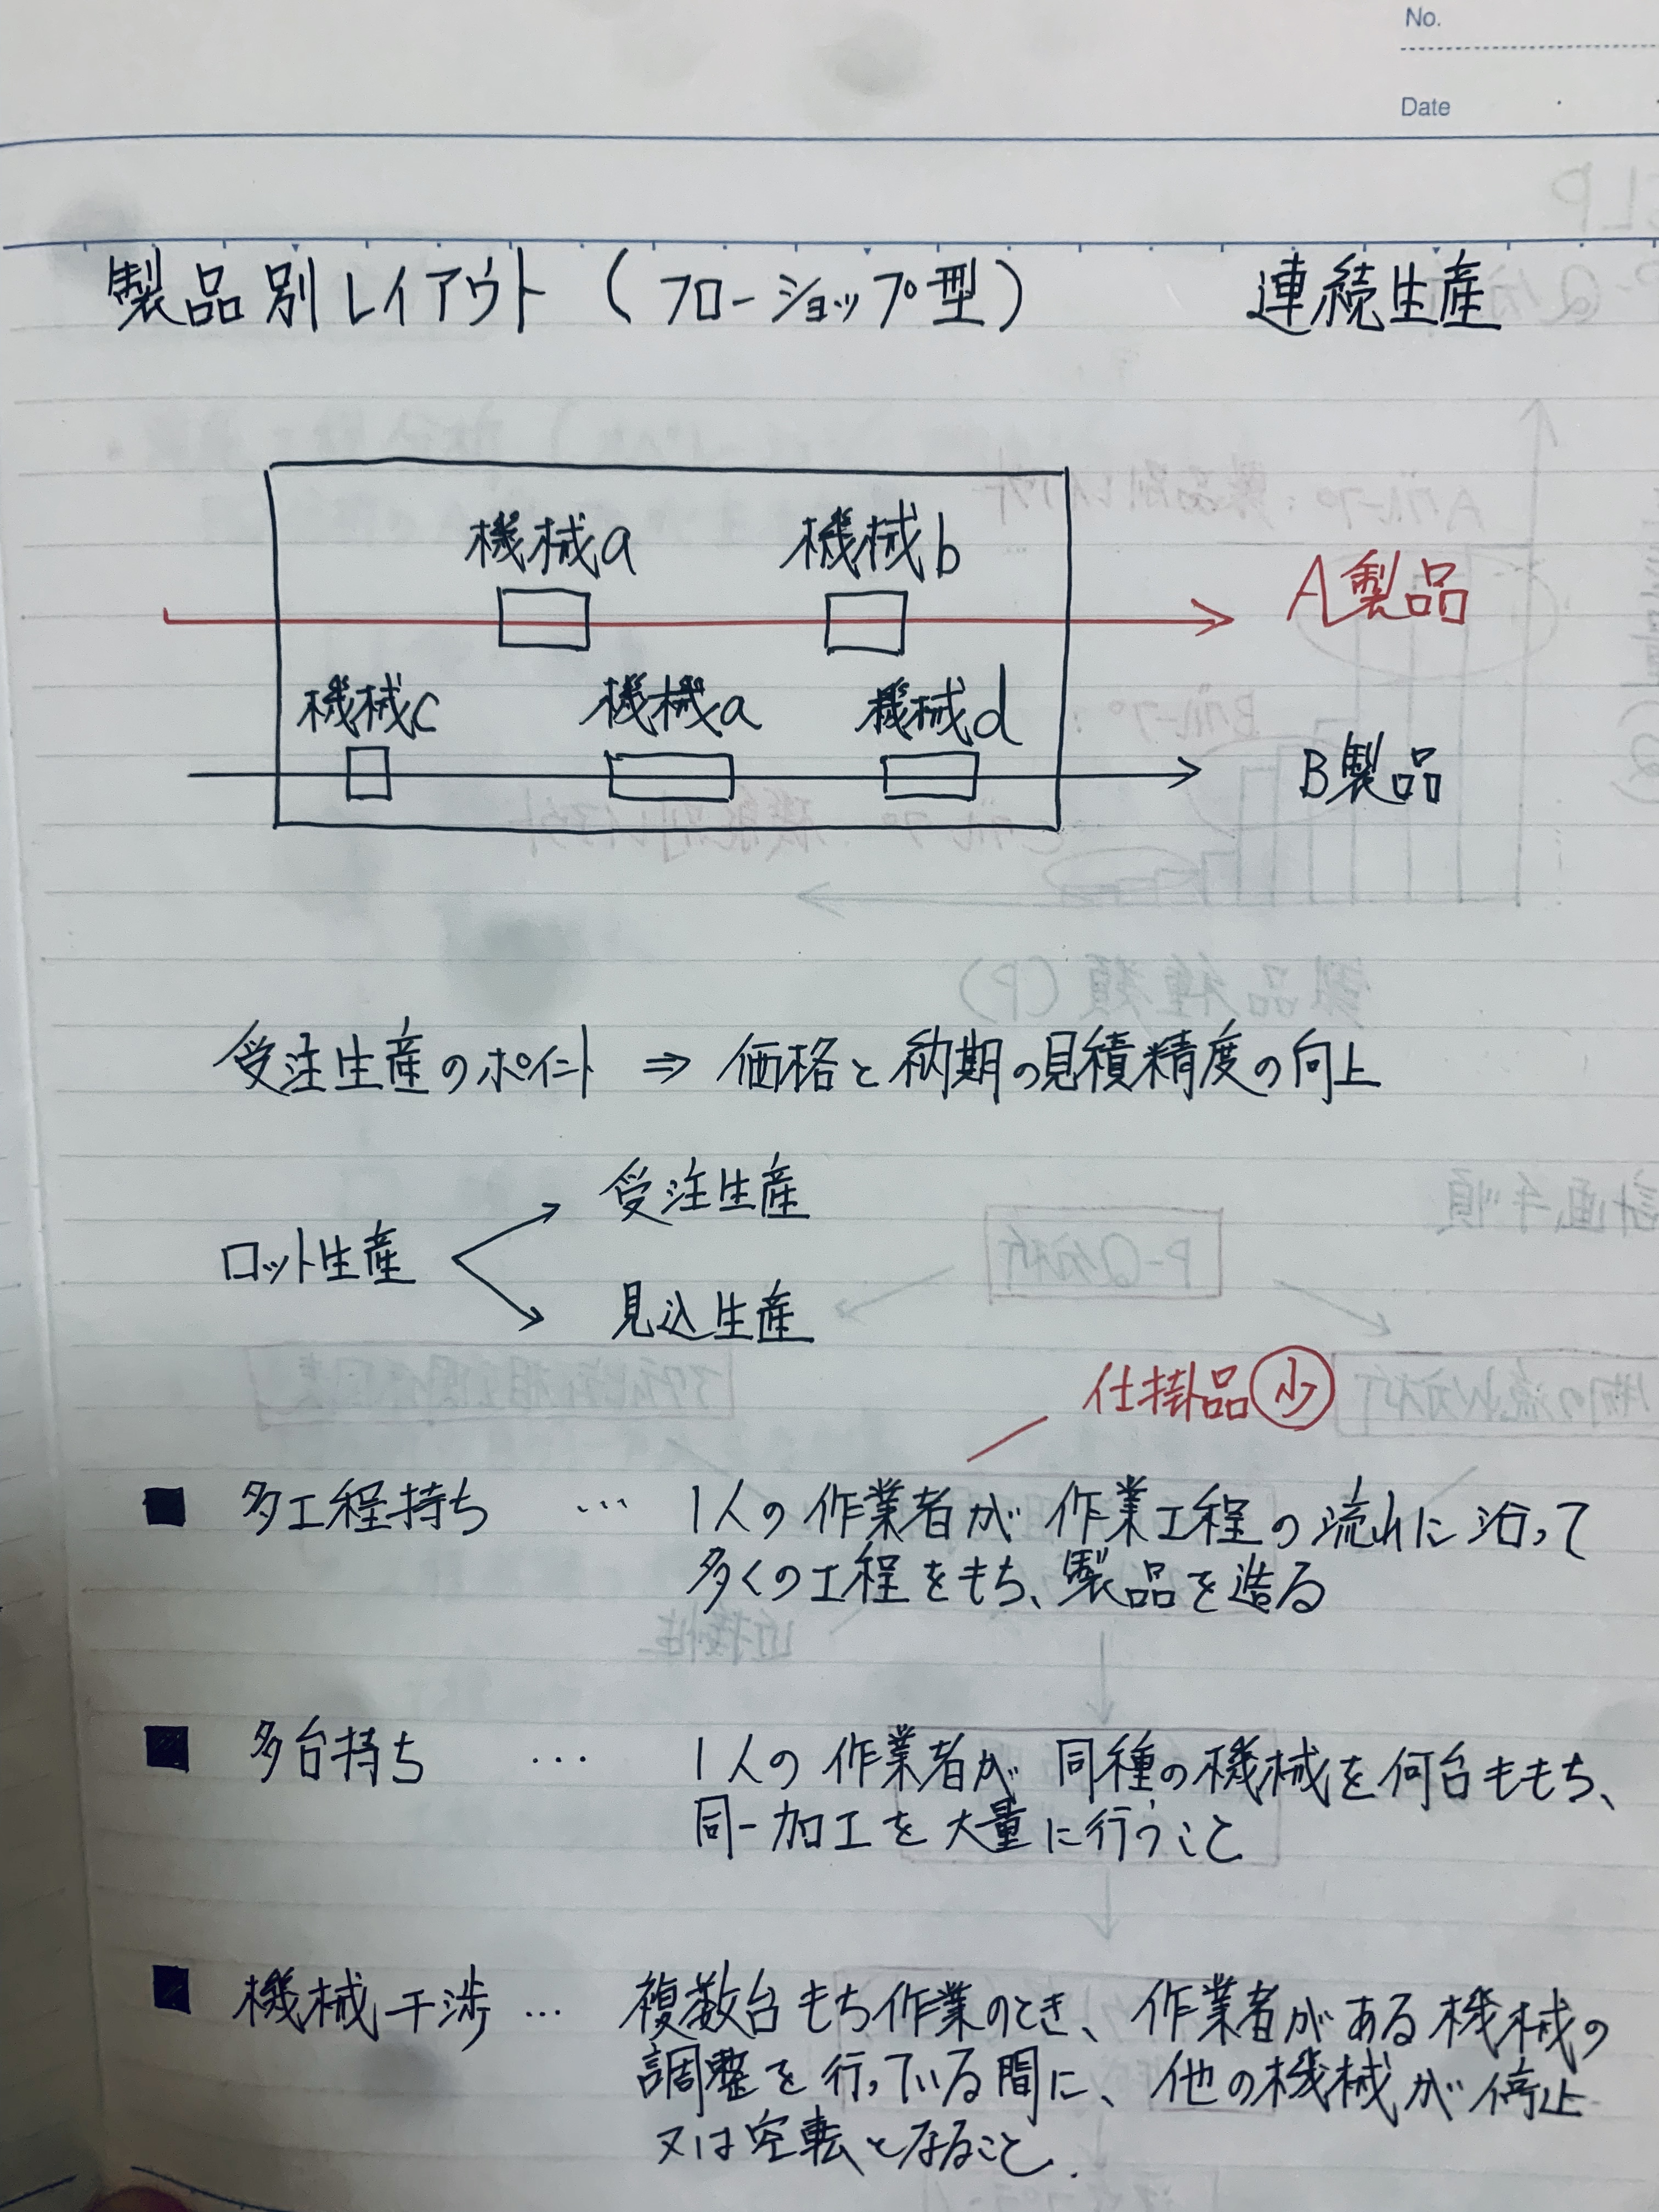 No.
Date
製品別レイアウト (フローショップ型) 連続生産
機械a 機械b
A製品
機械c 機械a 機械d
B製品
受注生産のポイント ⇒ 価格と納期の見積精度の向上
受注生産
ロット生産
見込生産
仕掛品 少
■ 多工程持ち … 1人の作業者が作業工程の流れに沿って
多くの工程をもち、製品を造る
■ 多台持ち … 1人の作業者が同種の機械を何台ももち、
同一加工を大量に行うこと
■ 機械干渉 … 複数台もち作業のとき、作業者がある機械の
調整を行っている間に、他の機械が停止
又は空転となること.